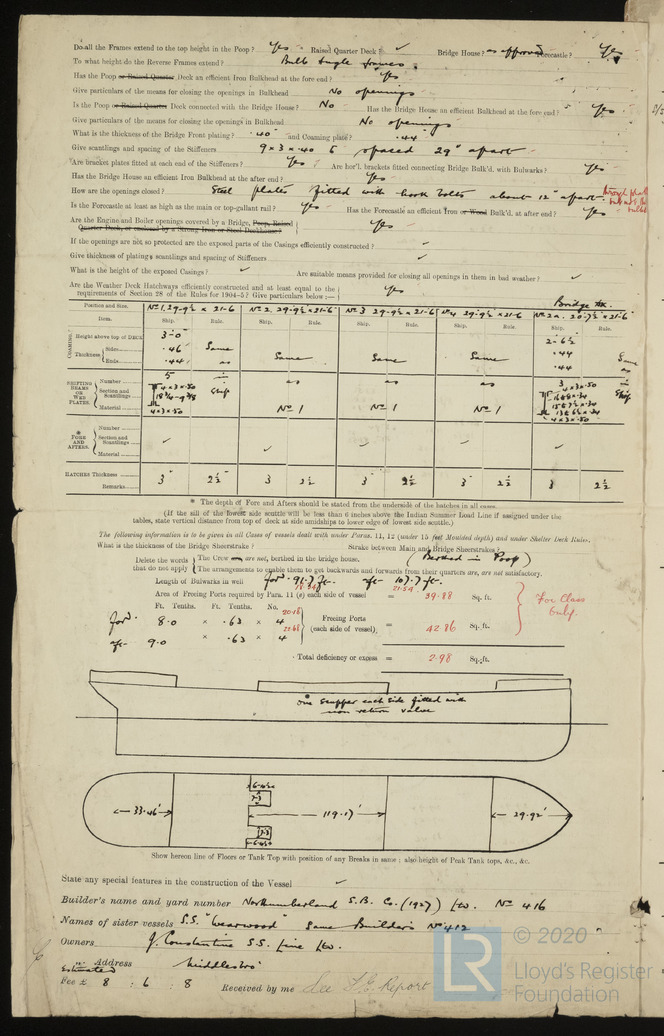 Do all the Frames extend to the top height in the Poop? Yes. Raised Quarter Deck? ✓ Bridge House? as approved Forecastle? Yes
To what height do the Reverse Frames extend? Bulb angle frames.
Has the Poop or Raised Quarter Deck an efficient Iron Bulkhead at the fore end? Yes
Give particulars of the means for closing the openings in Bulkhead No openings
Is the Poop or Raised Quarter Deck connected with the Bridge House? No Has the Bridge House an efficient Bulkhead at the fore end? Yes
Give particulars of the means for closing the openings in Bulkhead No openings
What is the thickness of the Bridge Front plating? .40" and Coaming plate? .44"
Give scantlings and spacing of the Stiffeners 9 x 3 x .40 spaced 29" apart
Are bracket plates fitted at each end of the Stiffeners? Yes Are hor'l. brackets fitted connecting Bridge Bulk'd. with Bulwarks? Yes
Has the Bridge House an efficient Iron Bulkhead at the after end? Yes
How are the openings closed? Steel plates fitted with hook bolts about 12" apart.
Is the Forecastle at least as high as the main or top-gallant rail? Yes Has the Forecastle an efficient Iron or Wood Bulk'd. at after end? Yes
Are the Engine and Boiler openings covered by a Bridge, Poop, Raised
Quarter Deck, or enclosed by a Strong Iron or Steel Deckhouse? Yes
If the openings are not so protected are the exposed parts of the Casings efficiently constructed? ✓
Give thickness of plating, scantlings and spacing of Stiffeners ✓
What is the height of the exposed Casings? ✓ Are suitable means provided for closing all openings in them in bad weather? ✓
Are the Weather Deck Hatchways efficiently constructed and at least equal to the
requirements of Section 28 of the Rules for 1904-5? Give particulars below:— Yes
Bridge Dk.
Position and Size. No 1, 29-9½ x 21-6 No 2, 29-9½ x 21-6 No 3 29-9½ x 21-6 No 4 29-9½ x 21-6 No 2a. 20-7½ x 21-6
Item. Ship. Rule. Ship. Rule. Ship. Rule. Ship. Rule. Ship. Rule.
COAMING. Height above top of DECK 3-0 2-6½
Thickness Sides .46 Same Same Same Same .44 Same
Ends .44 as as as as .44 as
SHIFTING BEAMS OR WEB PLATES. Number 5 3
Section and Scantlings 4 x 3 x .50 Ship 4 x 3 x .50 Ship
Material 4 x 3 x .50 No 1 No 1 No 1 4 x 3 x .50
* FORE AND AFTERS. Number
Section and Scantlings ✓ ✓ ✓ ✓ ✓
Material
HATCHES Thickness 3" 2½ 3 2½ 3 2½ 3 2½ 3 2½
Remarks
* The depth of Fore and Afters should be stated from the underside of the hatches in all cases
(If the sill of the lowest side scuttle will be less than 6 inches above the Indian Summer Load Line if assigned under the
tables, state vertical distance from top of deck at side amidships to lower edge of lowest side scuttle.)
The following information is to be given in all Cases of Vessels dealt with under Paras. 11, 12 (under 15 feet Moulded depth) and under Shelter Deck Rules.
What is the thickness of the Bridge Sheerstrake? Strake between Main and Bridge Sheerstrakes?
Delete the words that do not apply The Crew are, are not, berthed in the bridge house. (Berthed in Poop)
The arrangements to enable them to get backwards and forwards from their quarters are, are not satisfactory.
Length of Bulwarks in well ford. 91.7 ft. aft 107.7 ft.
Area of Freeing Ports required by Para. 11 (e) each side of vessel = 39.88 Sq. ft.
Ft. Tenths. Ft. Tenths. No.
ford. 8.0 x .63 x 4 20.16
Freeing Ports (each side of vessel) = 42.86 Sq. ft.
aft 9.0 x .63 x 4 22.68
For Class only.
Total deficiency or excess = 2.98 Sq. ft.
one scupper each side fitted with
non return valve
33.46' 119.17' 29.92'
Show hereon line of Floors or Tank Top with position of any Breaks in same; also height of Peak Tank tops, &c., &c.
State any special features in the construction of the Vessel ✓
Builder's name and yard number Northumberland S.B. Co. (1927) Ltd. No 416
Names of sister vessels S.S. "Wearwood" Same Builders No 412
Owners J. Constantine S.S. Line Ltd.
" Address Middlesbro'
Estimated
Fee £ 8 : 6 : 8 Received by me See F.E. Report
© 2020
LR
Lloyd's Register
Foundation